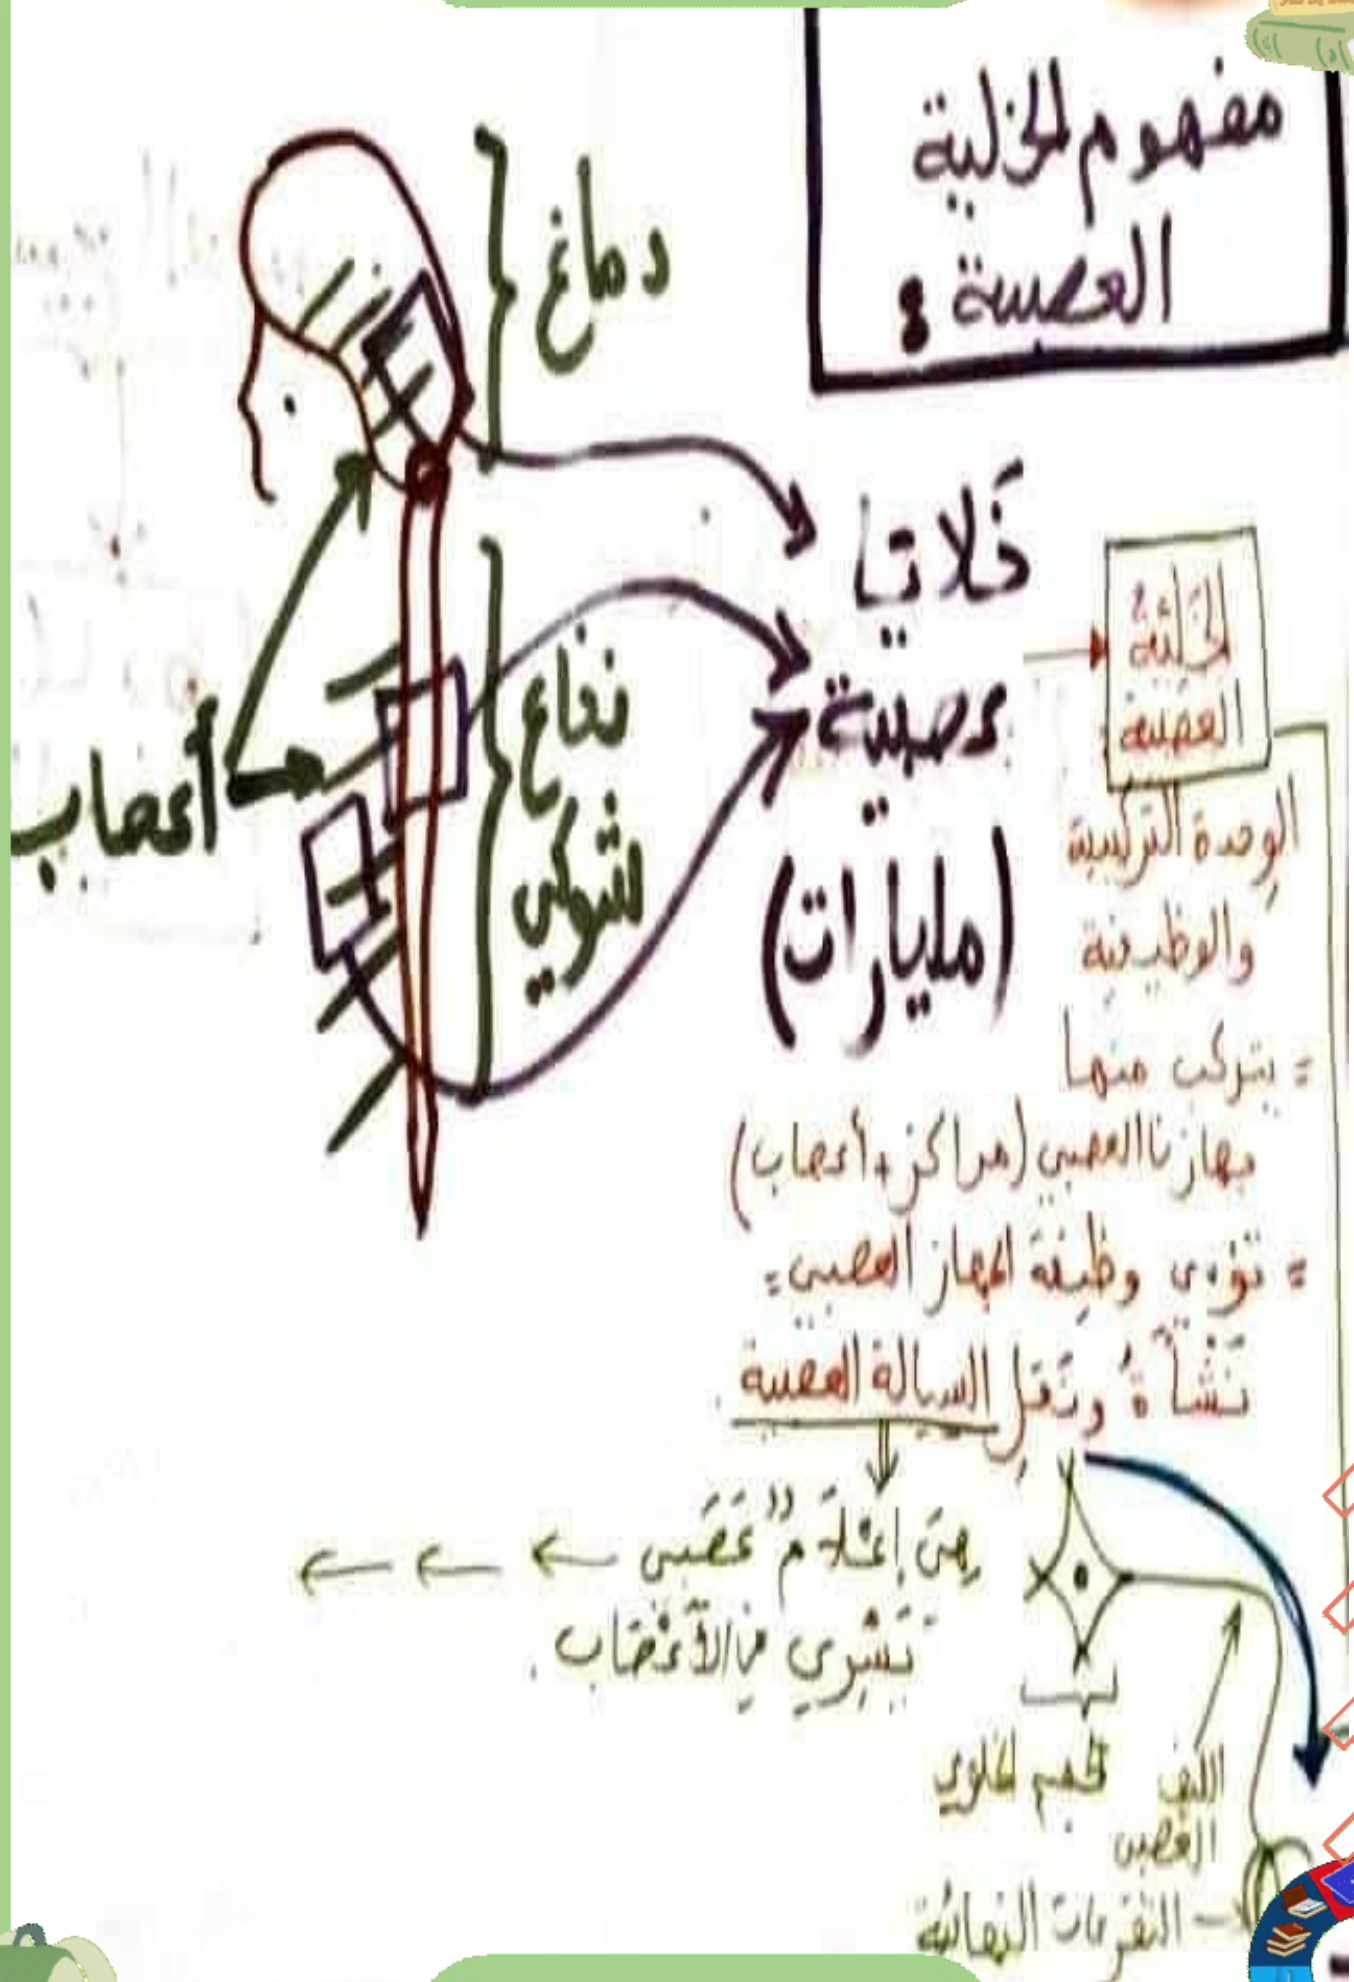 مفهوم الخلية
العصبية :
دماغ
خلايا
عصبية
(مليارات)
نخاع
شوكي
أعصاب
الخلية
العصبية
الوحدة التركيبية
والوظيفية
= يتركب منها
جهازنا العصبي (مراكز + أعصاب)
= تؤدي وظيفة الجهاز العصبي =
تنشأ و تنقل السيالة العصبية
هي إعلام عصبي
تسري في الأعصاب .
الجسم الخلوي
الليف
العصبي
التفرعات النهائية